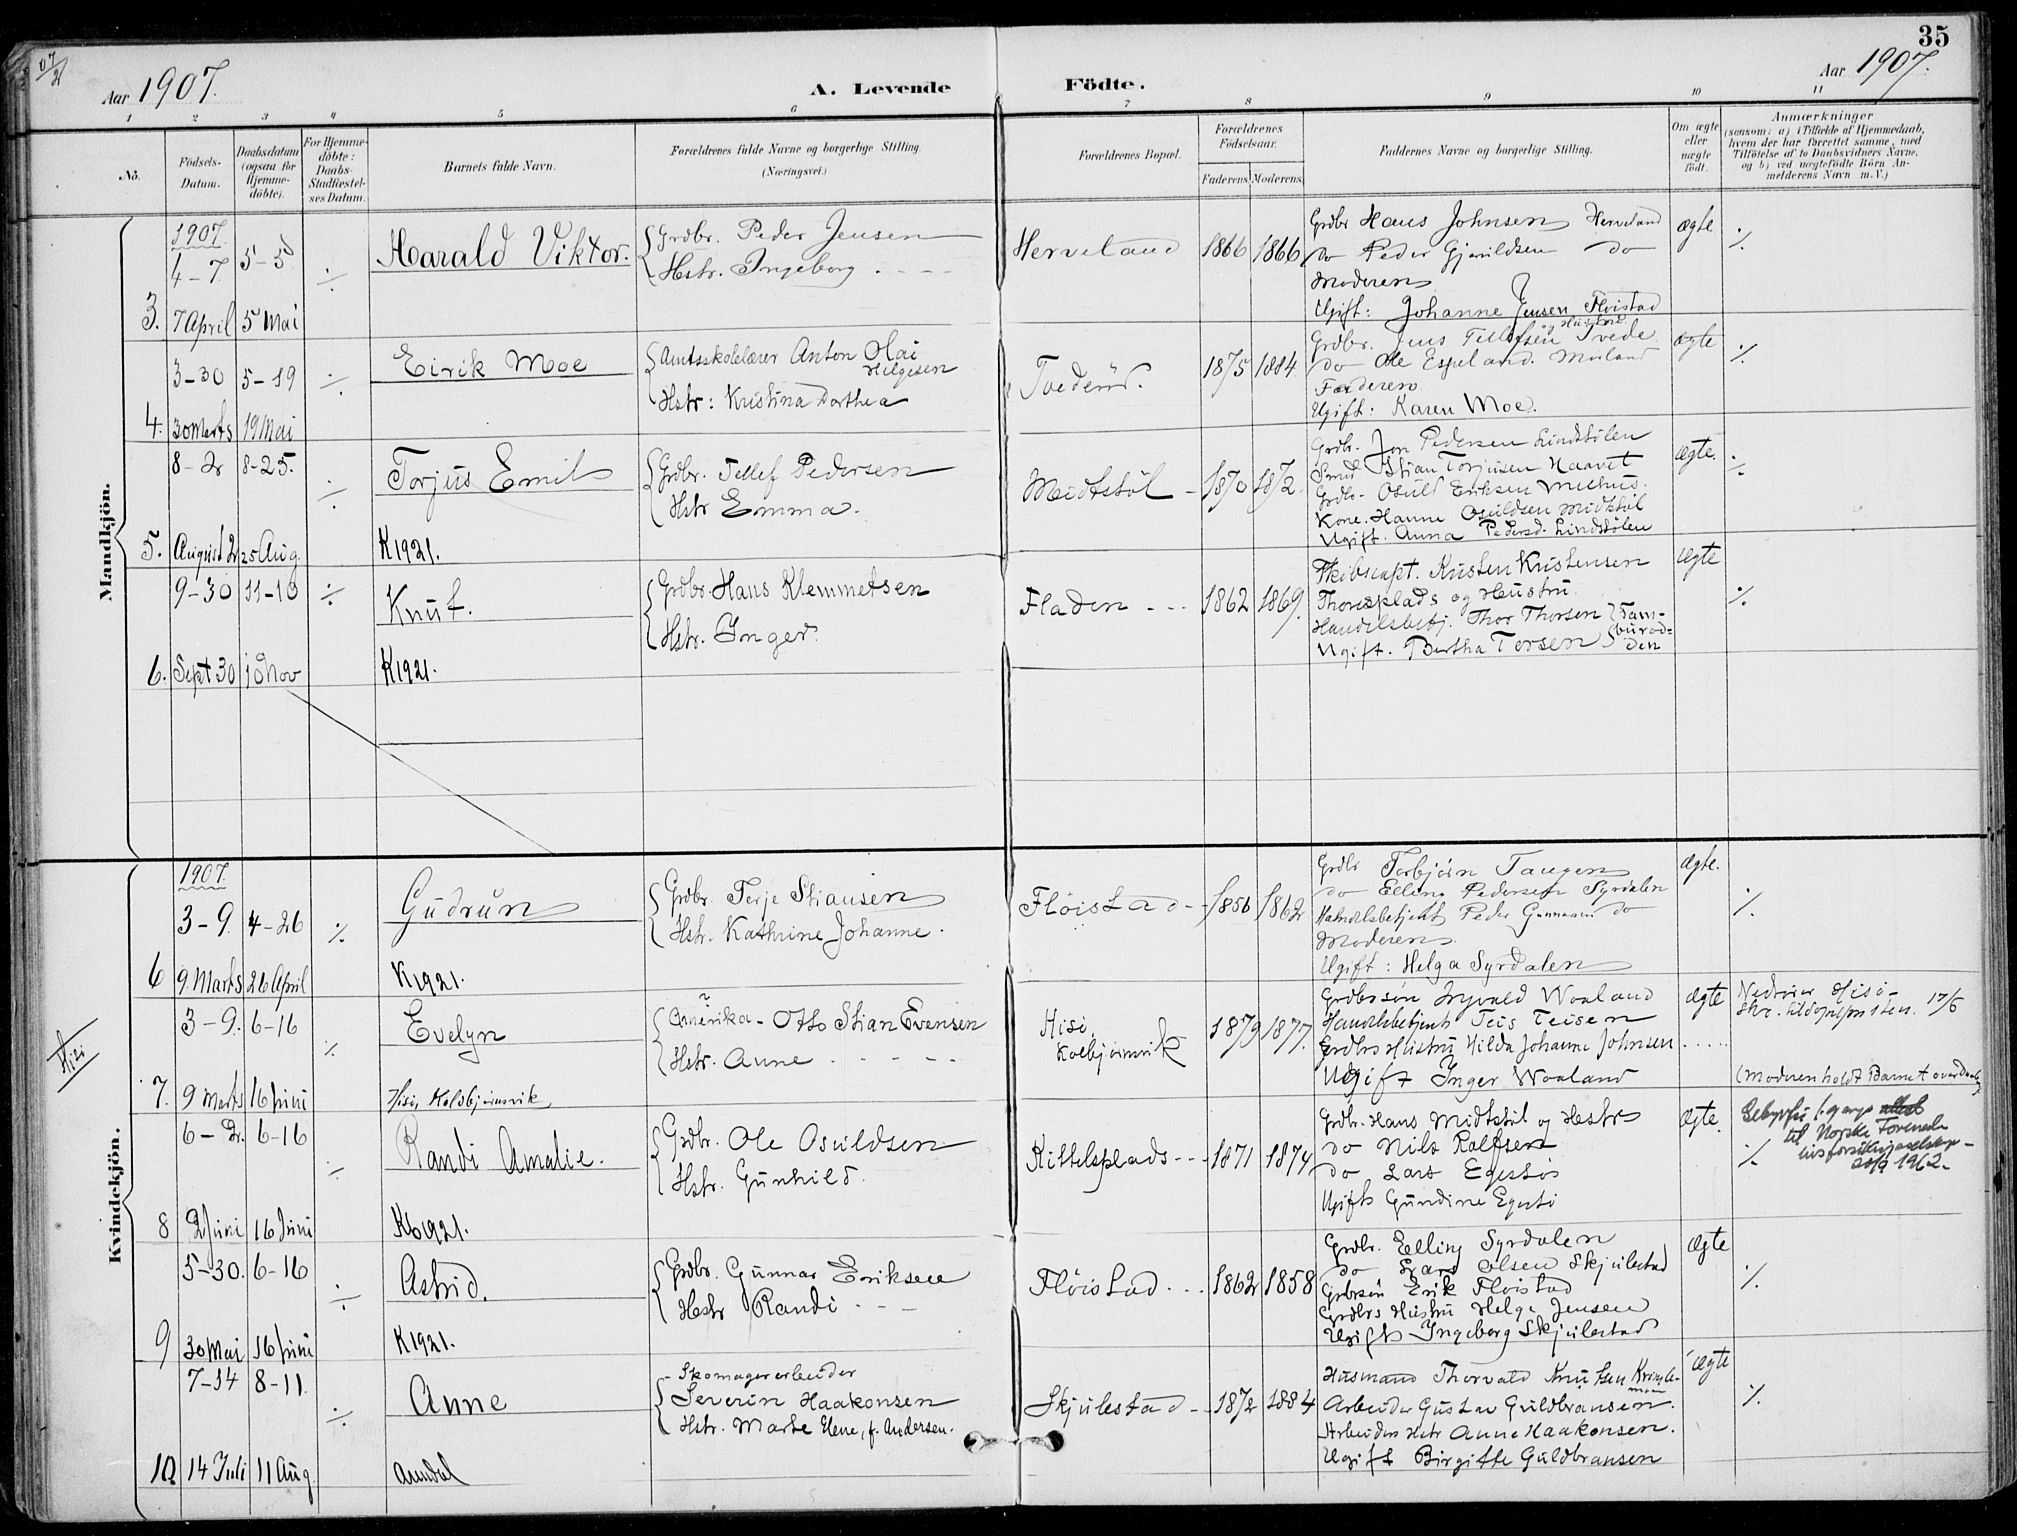 35
07/2
Aar 1907.
A. Levende Födte.
Aar 1907.
1 2 3 4 5 6 7 8 9 10 11
No.
Födsels-Datum.
Daabsdatum (ogsaa for Hjemme-döbte).
For Hjemme-döbte: Daabs-Stadfæstel-ses Datum.
Barnets fulde Navn.
Forældrenes fulde Navne og borgerlige Stilling.
(Næringsvei.)
Forældrenes Bopæl.
Forældrenes Fødselsaar.
Faderens. Moderens.
Faddernes Navne og borgerlige Stilling.
Om ægte eller uægte födt.
Anmærkninger
(saasom: a) i Tilfælde af Hjemmedaab,
hvem der har forrettet samme, med
Tilföielse af to Daabsvidners Navne,
og b) ved uægtefödte Börn An-
melderens Navn m. V.)
Mandkjön.
1907
4-7 5-5 ÷
3. 7 April 5 Mai
Harald Viktor.
Grdbr. Peder Jensen
Hstr. Ingeborg
Herveland 1866 1866
Grdbr Hans Johnsen Herveland
do Peder Gjerildsen do
Moderen
Ugift: Johanne Jensen Fløistad
ægte ٪
3-30 5-19 ÷
4. 30 Marts 19 Mai
Eirik Moe
Amtsskolelærer Anton Olai
Helgesen
Hstr: Kristina Dorthea
Tvedeüs. 1875 1884
Grdbr. Jens Tellefsen Tvede
og Hustru
do Ole Espeland. Mørland
Faderen
Ugift. Karen Moe.
ægte ٪
8-2 8-25. ÷
5. August 2 25 Aug.
Torjus Emil
K1921.
Grdbr. Tellef Pedersen
Hstr Emma.
Midtstøl 1870 1872.
Grdbr. Jon Pedersen Lindstølen
Smed Stian Torjusen Haavet
Grdbr. Osuld Eriksen
Kone. Hanne Osuldsen Midtstøl
Ugift. Anna Pedersd. Lindstølen
ægte. ÷
9-30 11-10 ÷
6. Sept 30 10 Nov
Knut.
K1921.
Grdbr. Hans Klemmetsen
Hstr. Inger.
Fladen 1862 1869.
Skibscapt. Kristen Kristensen
Thoresplads og Hustru.
Handelsbetj. Thor Thorsen
Ugift. Bertha Torsen
ægte ٪
Kvindekjön.
1907.
3-9. 4-26 ٪
6 9. Marts 26 April
Gudrun
K1921.
Grdbr. Terje Stiansen
Hstr. Kathrine Johanne.
Fløistad 1856 1862
Grdbr Torbjørn Tangen
do Elling Pedersen Syrdalen
Handelsbetjent Peder Gunnarsen do
Moderen
Ugift: Helga Syrdalen
Ægte. ٪
Hisi
3-9. 6-16 ٪
7. 9 Marts 16 Juni
Evelyn
Hisi, Kolbjørnsvik
Amerika - Otto Stian Evensen
Hstr. Anne
Hisi,
Kolbjørnsvik 1879 1877.
Grdbrsøn Ingvald Woaland
Handelsbetjent Teis Teisen
Grdbrs Hustru Hilda Johanne Johnsen
Ugift Inger Woaland
Ægte
Nedenes Hisi-
17/6
(Moderen holdt Barnet over Daaben)
6-2. 6-16 ÷
8 2 Juni 16 Juni
Randi Amalie.
K1921.
Grdbr. Ole Osuldsen
Hstr. Gunhild.
Kittelsplads 1871 1874
Grdbr. Hans Midtstøl og Hustr
do Nils Rolfsen
do Lars Egersøs
Ugift Gundine
Ægte. ٪
til Norske Forenede
livsforsikringsselskap
20/9 1962.
5-30. 6-16 ÷
9 30 Mai 16 Juni
Astrid.
K1921.
Grdbr. Gunnar Eriksen
Hstr Randi
Fløistad 1862 1858
Grdbr. Elling Syrdalen
do Lars Olsen Skjulestad
Grdbrsøn Erik Fløistad
Grdbrs Hustru Helga Jensen
Ugift Ingeborg Skjulestad
Ægte ٪
7-14 8-11. ÷
10. 14 Juli 11 Aug.
Anne
Arendal
Skomagerarbeider
Severin Haakonsen
Hstr. Marte Elene, f. Andersen.
Skjulestad 1872 1884
Husmand Thorvald Knutsen
Arbeider Gustav Guldbransen.
Arbeiders Hstr Anne Haakonsen.
Ugift Birgitte Guldbransen
Ægte ٪